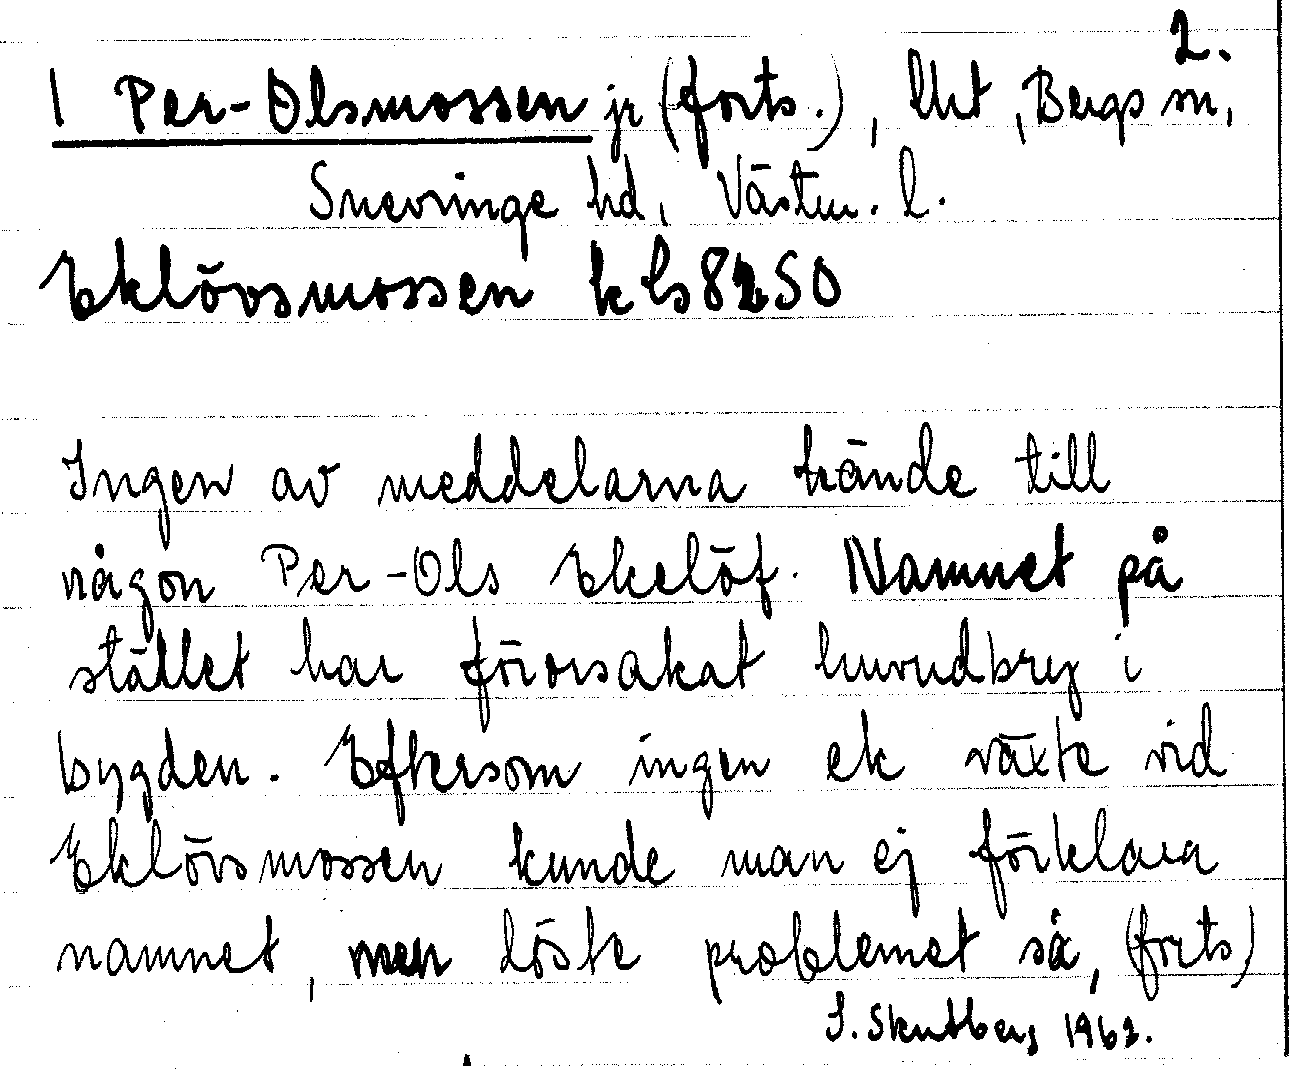 2.
1 Per-Olsmossen jr (forts.), Uht, Bergs sn,
Snevringe hd, Västm. l.
Eklövsmossen kls 8250
Ingen av meddelarna kände till
någon Per-Ols Ekelöf. Namnet på
stället har förorsakat huvudbry i
bygden. Eftersom ingen ek växte vid
Eklövsmossen kunde man ej förklara
namnet, men löste problemet så, (forts)
S. Skutberg 1962.